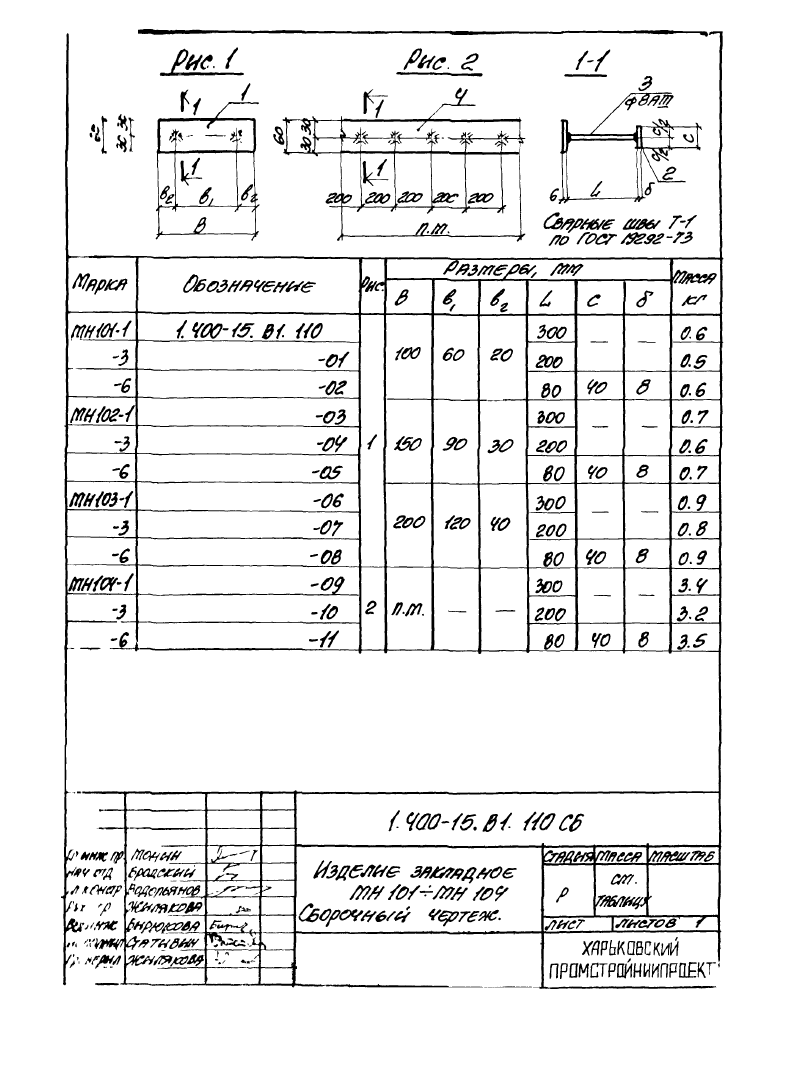 Рис. 1 Рис. 2 1-1
1 1 1 4 3
ф8АIII
60 30 30 60 30 30
с/2 с/2 с
1 1 2
в₂ в₁ в₂ 200 200 200 200 200 6 L δ
В п.м.
Сварные швы Т-1
по ГОСТ 19292-73
Марка Обозначение Рис. Размеры, мм Масса кг
В в₁ в₂ L с δ
МН101-1 1.400-15.В1.110 1 100 60 20 300 — — 0.6
-3 -01 200 0.5
-6 -02 80 40 8 0.6
МН102-1 -03 150 90 30 300 — — 0.7
-3 -04 200 0.6
-6 -05 80 40 8 0.7
МН103-1 -06 200 120 40 300 — — 0.9
-3 -07 200 0.8
-6 -08 80 40 8 0.9
МН104-1 -09 2 п.м. — — 300 — — 3.4
-3 -10 200 3.2
-6 -11 80 40 8 3.5
1.400-15.В1.110 СБ
инж пр. Монин
нач отд Бродский
констр Водопьянов
Жилякова
Вед инж Бирюкова
Статывин
Жилякова
Изделие закладное
МН 101÷МН 104
Сборочный чертеж.
Стадия Масса Масштаб
Р см. таблицу
лист листов 1
ХАРЬКОВСКИЙ
ПРОМСТРОЙНИИПРОЕКТ